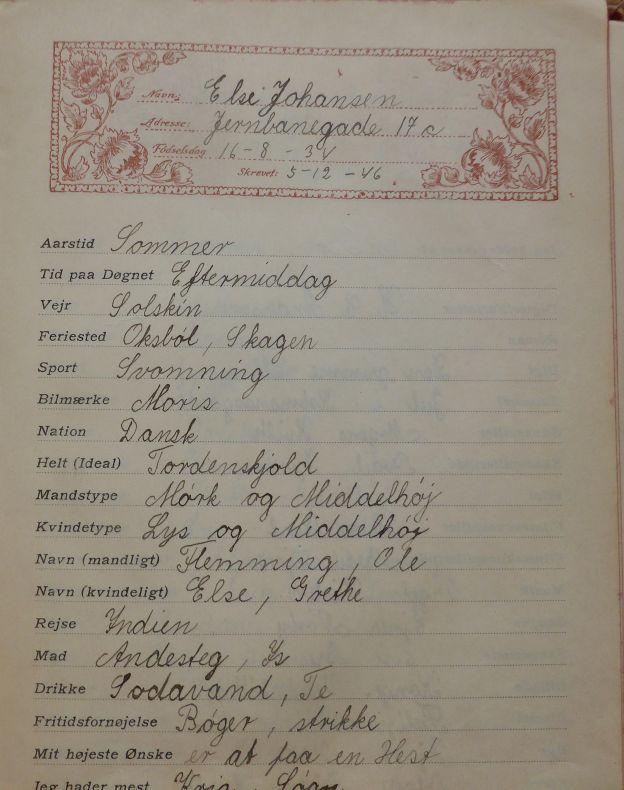 Navn: Else Johansen
Adresse: Jernbanegade 17 a
Födselsdag 16-8-3
Skrevet: 5-12-46
Aarstid Sommer
Tid paa Døgnet Eftermiddag
Vejr Solskin
Feriested Oksból, Skagen
Sport Svømning
Bilmærke Moris
Nation Dansk
Helt (Ideal) Tordenskjold
Mandstype Mórk og Middelhój
Kvindetype Lys og Middelhój
Navn (mandligt) Flemming, Ole
Navn (kvindeligt) Else, Grethe
Rejse Indien
Mad Andesteg, Is
Drikke Sodavand, Te
Fritidsfornøjelse Bóger, strikke
Mit højeste Ønske er at faa en Hest
Jeg hader mest Krig,